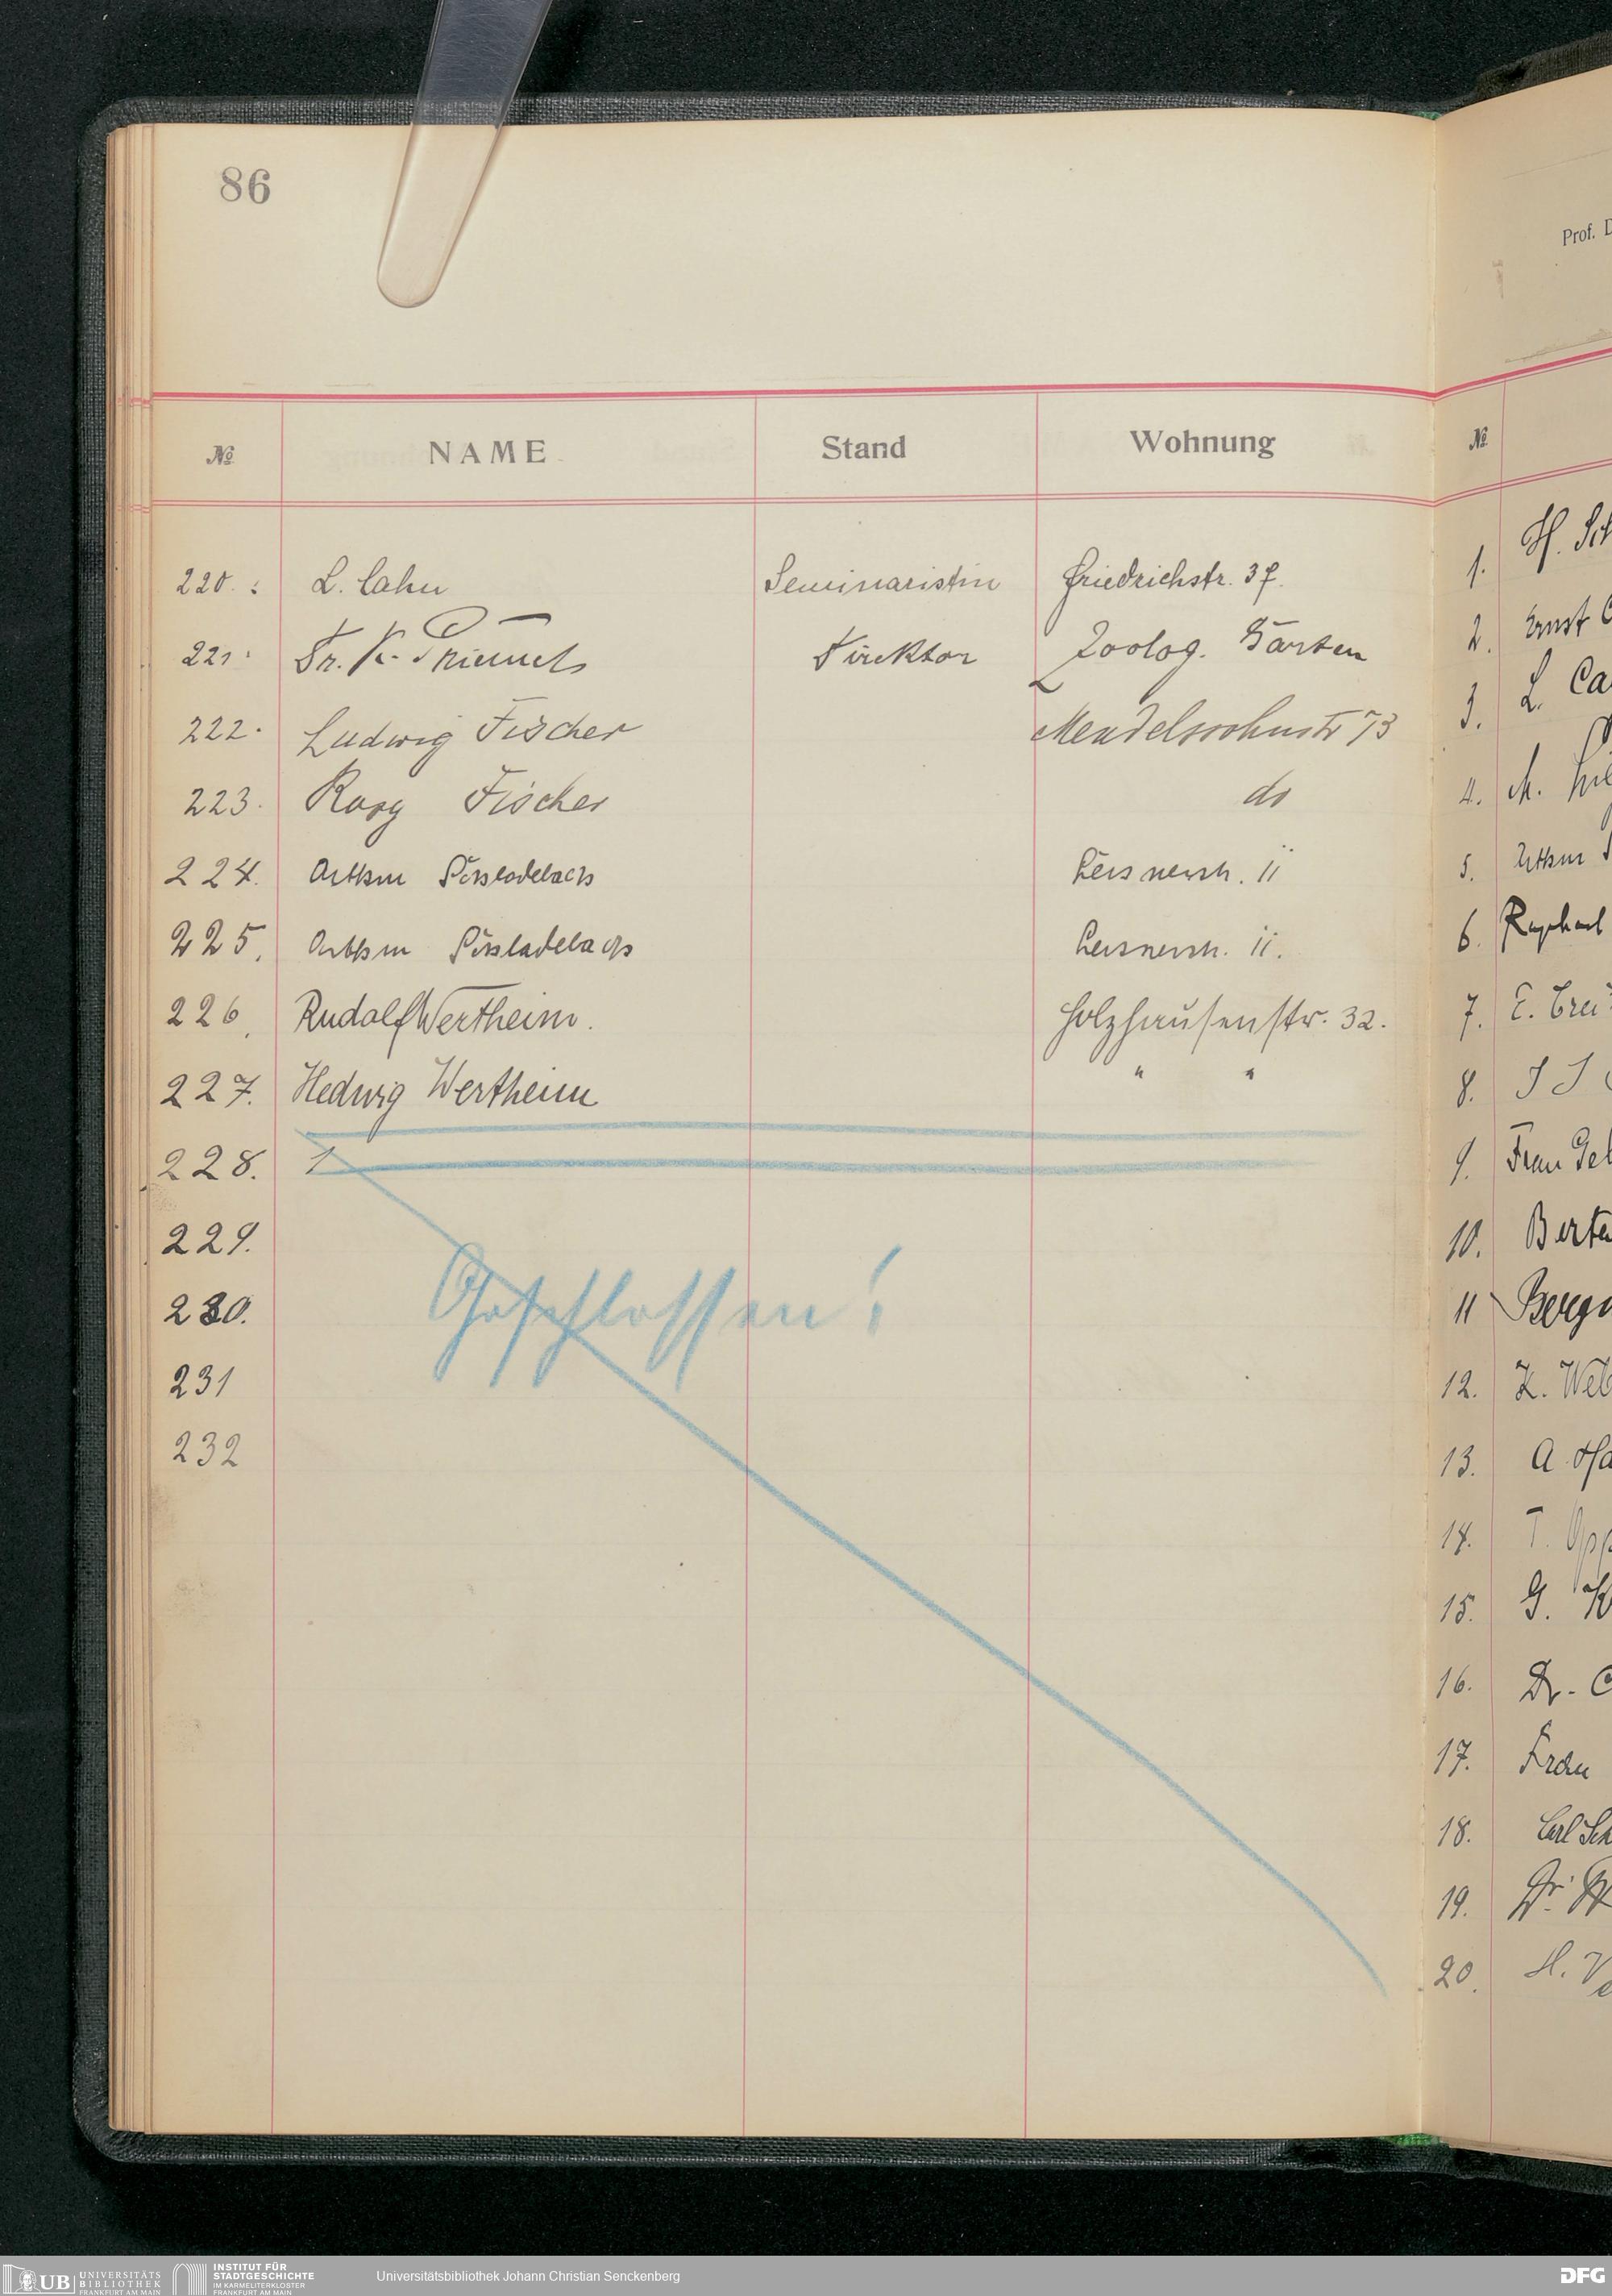 86
№ NAME Stand Wohnung
220. L. Cahn Seminaristin Friedrichstr. 37.
221. Dr. K. Priemel Direktor Zoolog. Garten
222. Ludwig Fischer Mendelssohnstr 73
223. Rosy Fischer do
224. Arthur Leisnerstr. 11
225. Arthur Leisnerstr. 11.
226. Rudolf Wertheim. Holzhausenstr. 32.
227. Hedwig Wertheim " "
228. 1
229.
230.
Geschlossen!
231
232
Prof. D
№
1. H. Sch
2. Ernst C
3. L. Ca
4. M.
5. Arthur
6. Raphael
7. E.
8. J J
9. Frau Gel
10. Berta
11 Berg
12. K. Web
13. A. Ha
14. T. Opp
15. G.
16. Dr. C
17. Frau
18. Carl Sch
19.
20. H. V
UB UNIVERSITÄTS
BIBLIOTHEK
FRANKFURT AM MAIN
INSTITUT FÜR
STADTGESCHICHTE
IM KARMELITERKLOSTER
FRANKFURT AM MAIN
Universitätsbibliothek Johann Christian Senckenberg
DFG